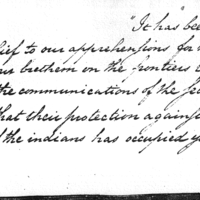 "It has bee
lief to our apprehensions for
brethern on the frontiers
the communications of the
that their protection against
the indians has occupied y